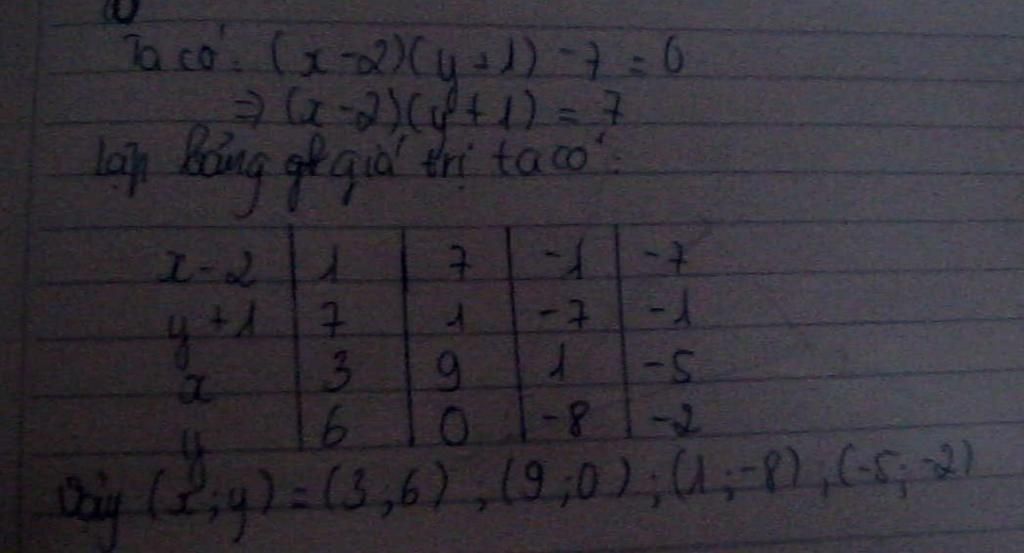 Ta có: (x-2)(y+1)-7=0
⇒ (x-2)(y+1) = 7
Lập bảng giá trị ta có:
x-2 | 1 | 7 | -1 | -7
y+1 | 7 | 1 | -7 | -1
x | 3 | 9 | 1 | -5
y | 6 | 0 | -8 | -2
Vậy (x;y) = (3;6) ; (9;0) ; (1;-8) ; (-5;-2)